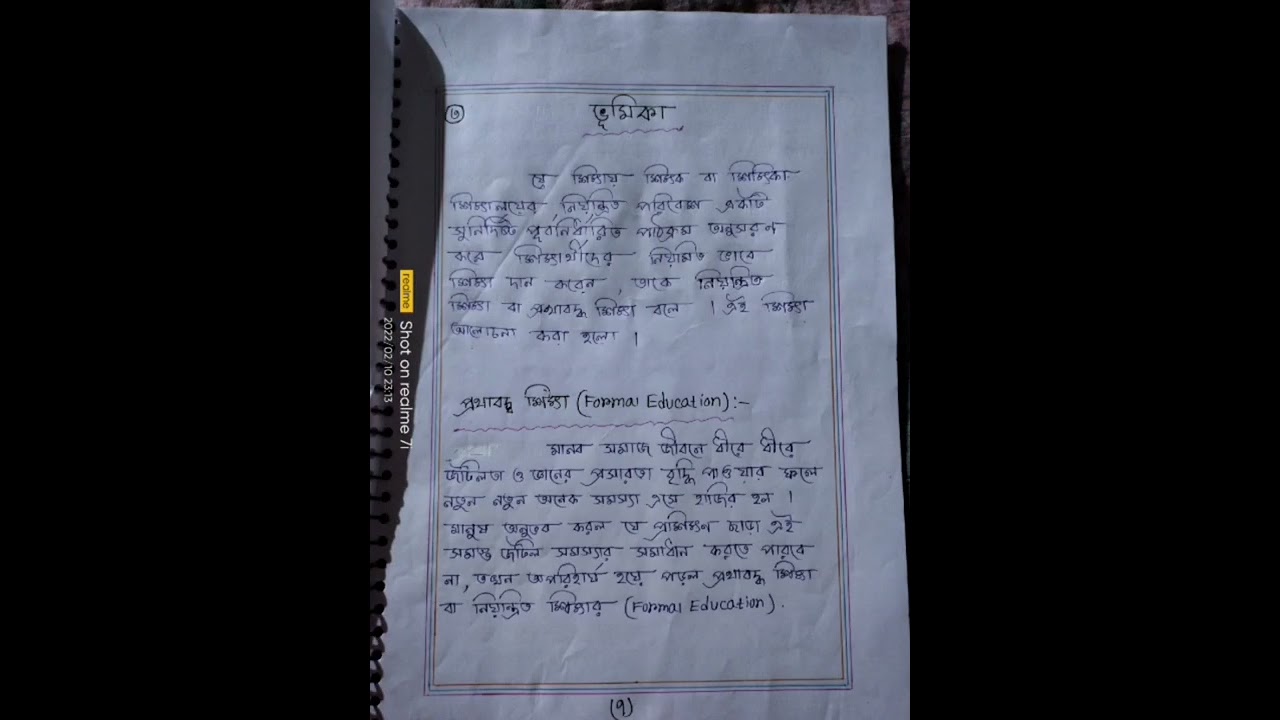 ৩
ভূমিকা
যে শিক্ষায় শিক্ষক বা শিক্ষিকা
শিক্ষালয়ের নিয়ন্ত্রিত পরিবেশে একটি
সুনির্দিষ্ট পূর্বনির্ধারিত পাঠক্রম অনুসরণ
করে শিক্ষার্থীদের নিয়মিত ভাবে
শিক্ষা দান করেন, তাকে নিয়ন্ত্রিত
শিক্ষা বা প্রথাবদ্ধ শিক্ষা বলে । এই শিক্ষা
আলোচনা করা হলো ।
প্রথাবদ্ধ শিক্ষা (Formal Education):-
মানব সমাজে জীবনে ধীরে ধীরে
জটিলতা ও জ্ঞানের প্রসারতা বৃদ্ধি পাওয়ার ফলে
নতুন নতুন অনেক সমস্যা এসে হাজির হল ।
মানুষ অনুভব করল যে প্রশিক্ষণ ছাড়া এই
সমস্ত জটিল সমস্যার সমাধান করতে পারবে
না, তখন অপরিহার্য হয়ে পড়ল প্রথাবদ্ধ শিক্ষা
বা নিয়ন্ত্রিত শিক্ষার (Formal Education).
(৭)
realme Shot on realme 7i
2022/02/10 23:13